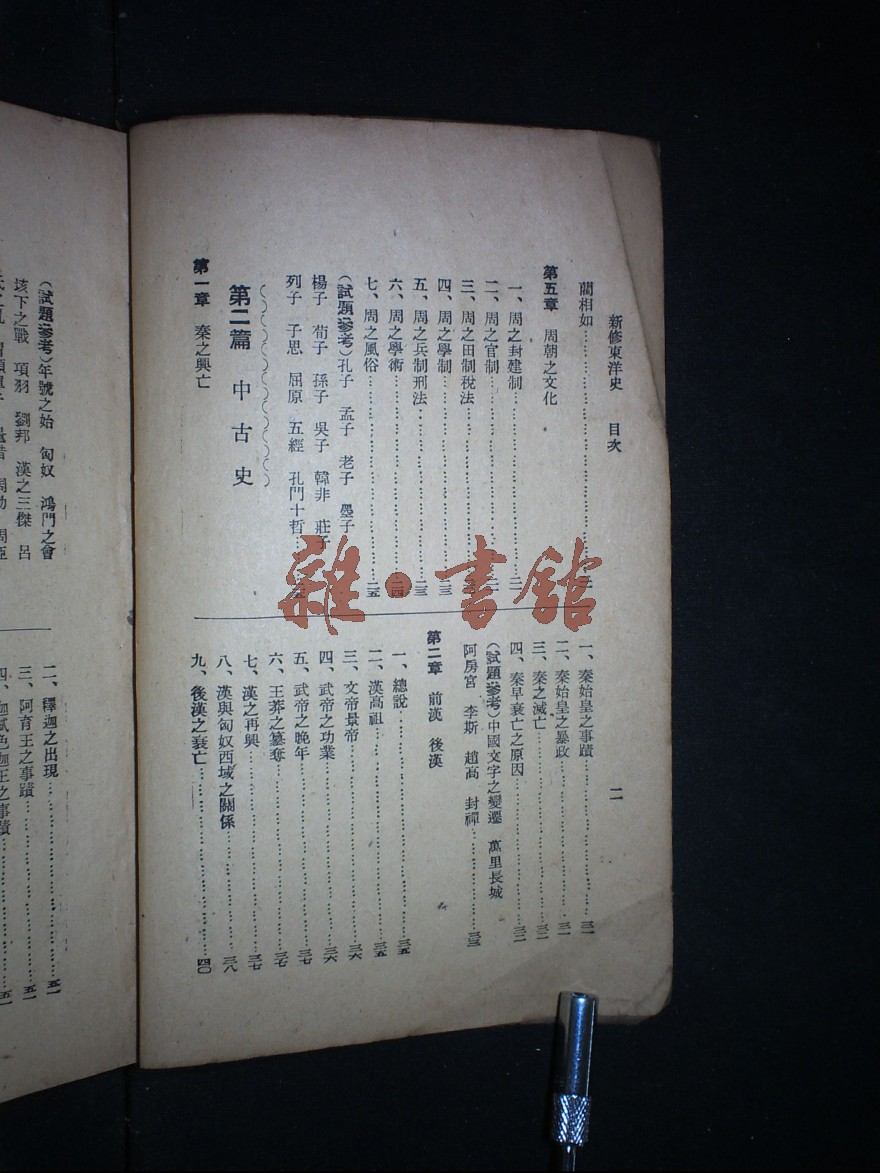 新修東洋史　目次
二
藺相如
第五章　周朝之文化
一、周之封建制
二、周之官制
三、周之田制稅法
四、周之學制……二三
五、周之兵制刑法……二三
六、周之學術……二四
七、周之風俗……二五
(試題參考)孔子　孟子　老子　墨子
楊子　荀子　孫子　吳子　韓非　莊子
列子　子思　屈原　五經　孔門十哲
第二篇　中古史
第一章　秦之興亡
一、秦始皇之事蹟……三一
二、秦始皇之暴政……三一
三、秦之滅亡……三二
四、秦早衰亡之原因……三二
(試題參考)中國文字之變遷　萬里長城
阿房宮　李斯　趙高　封禪……三三
第二章　前漢　後漢
一、總說……三五
二、漢高祖……三五
三、文帝景帝……三六
四、武帝之功業……三六
五、武帝之晚年……三七
六、王莽之篡奪……三七
七、漢之再興……三七
八、漢與匈奴西域之關係……三八
九、後漢之衰亡……四〇
(試題參考)年號之始　匈奴　鴻門之會
垓下之戰　項羽　劉邦　漢之三傑　呂
二、釋迦之出現……五一
三、阿育王之事蹟……五一
四、迦膩色迦王之事蹟……五一
雜·書館